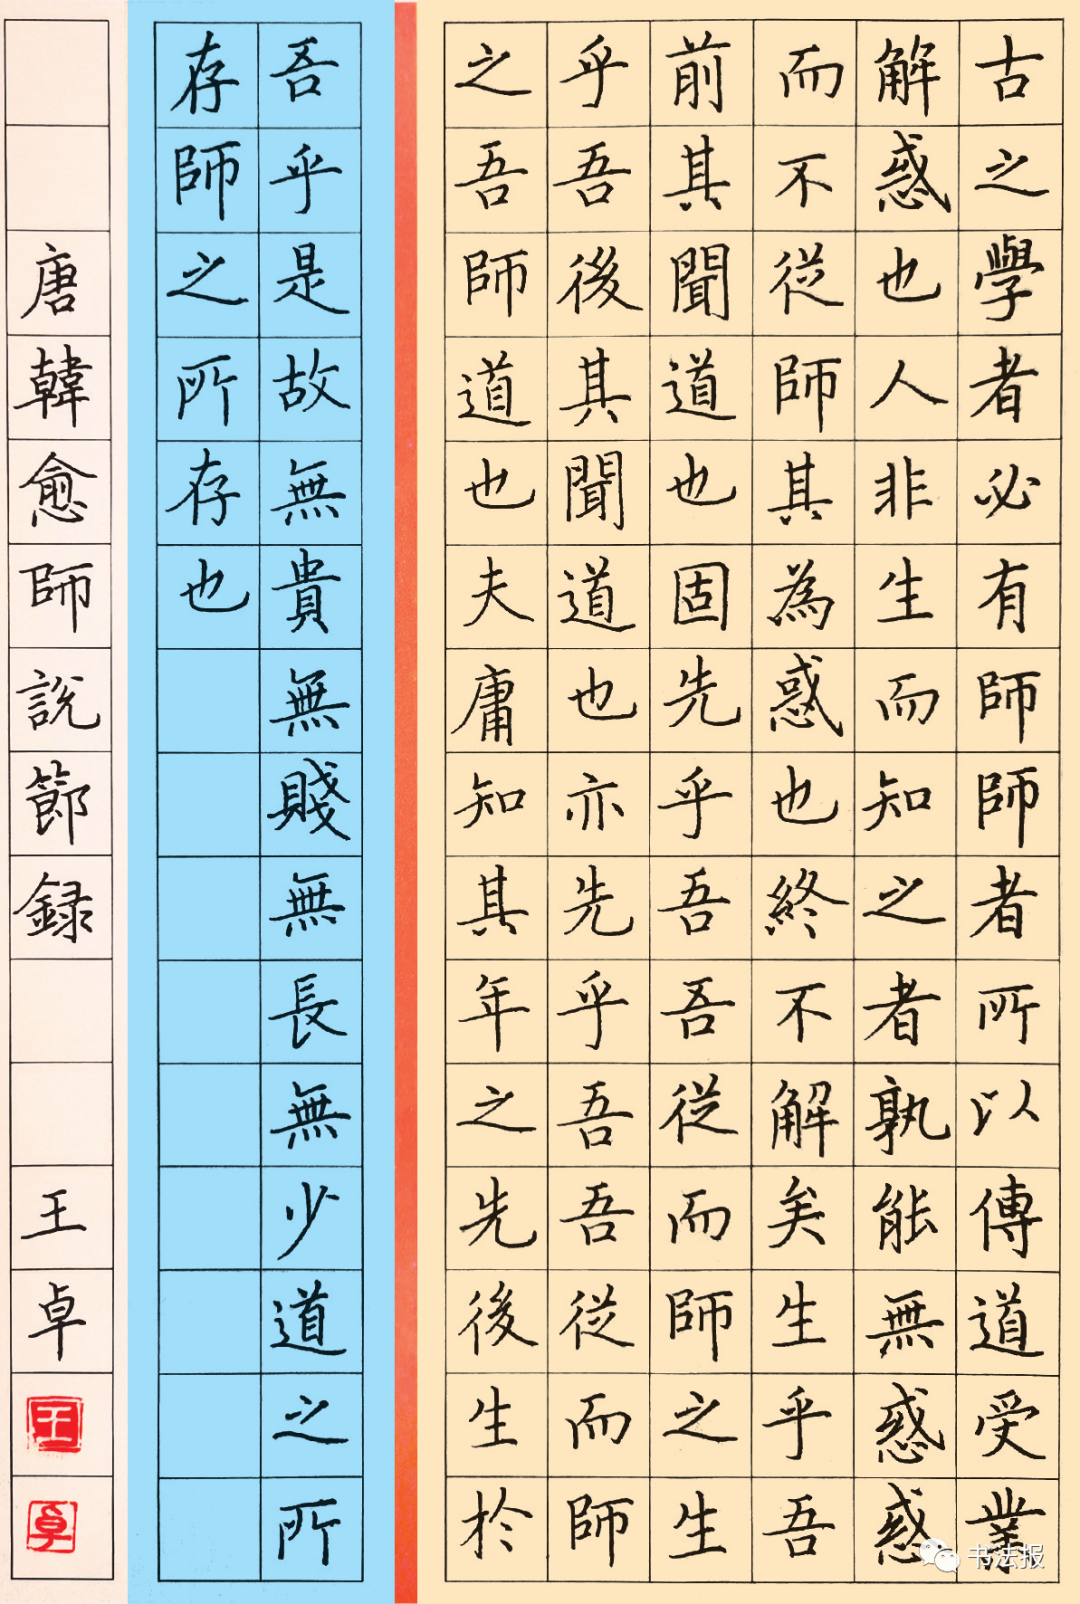 古之學者必有師師者所以傳道受業
解惑也人非生而知之者孰能無惑惑
而不從師其為惑也終不解矣生乎吾
前其聞道也固先乎吾吾從而師之生
乎吾後其聞道也亦先乎吾吾從而師
之吾師道也夫庸知其年之先後生於
吾乎是故無貴無賤無長無少道之所
存師之所存也
唐韓愈師説節録 王卓
王
卓
书法报